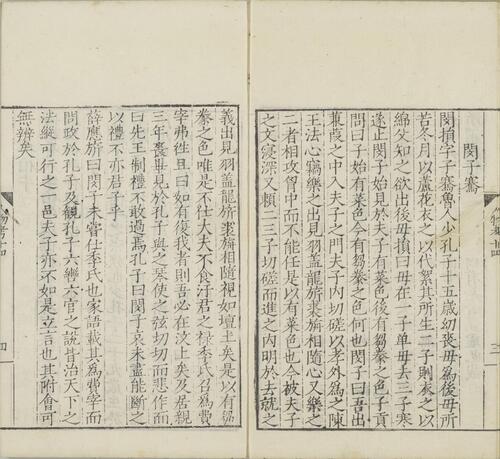 閔子騫
閔損字子騫魯人少孔子十五歲幼喪母為後母所
苦冬月以蘆花衣之以代絮其所生二子則衣之以
綿父知之欲出後母損曰母在一子單母去三子寒
遂止閔子始見於夫子有菜色後有芻豢之色子貢
問曰子始有菜色今有芻豢之色何也閔子曰吾出
蒹葭之中入夫子之門夫子內切磋以孝外為之陳
王法心竊樂之出見羽蓋龍旂裘旃相隨心又樂之
二者相攻胷中而不能任是以有菜色也今被夫子
之文寖深又賴二三子切磋而進之內明於去就之
義出見羽蓋龍旂裘旃相隨視如壇土矣是以有芻
豢之色唯是不仕大夫不食汙君之祿季氏召為費
宰弗徃且曰如有復我者則吾必在汶上矣及居親
三年喪畢見於孔子與之琴使之弦切切而悲作而
曰先王制禮不敢過焉孔子曰閔子哀未盡能斷之
以禮不亦君子乎
薛應旂曰閔子未嘗仕季氏也家語載其為費宰而
問政於孔子及觀孔子六轡六官之說皆治天下之
法縱可行之一邑夫子亦不如是立言也其附會可
無辨矣
四